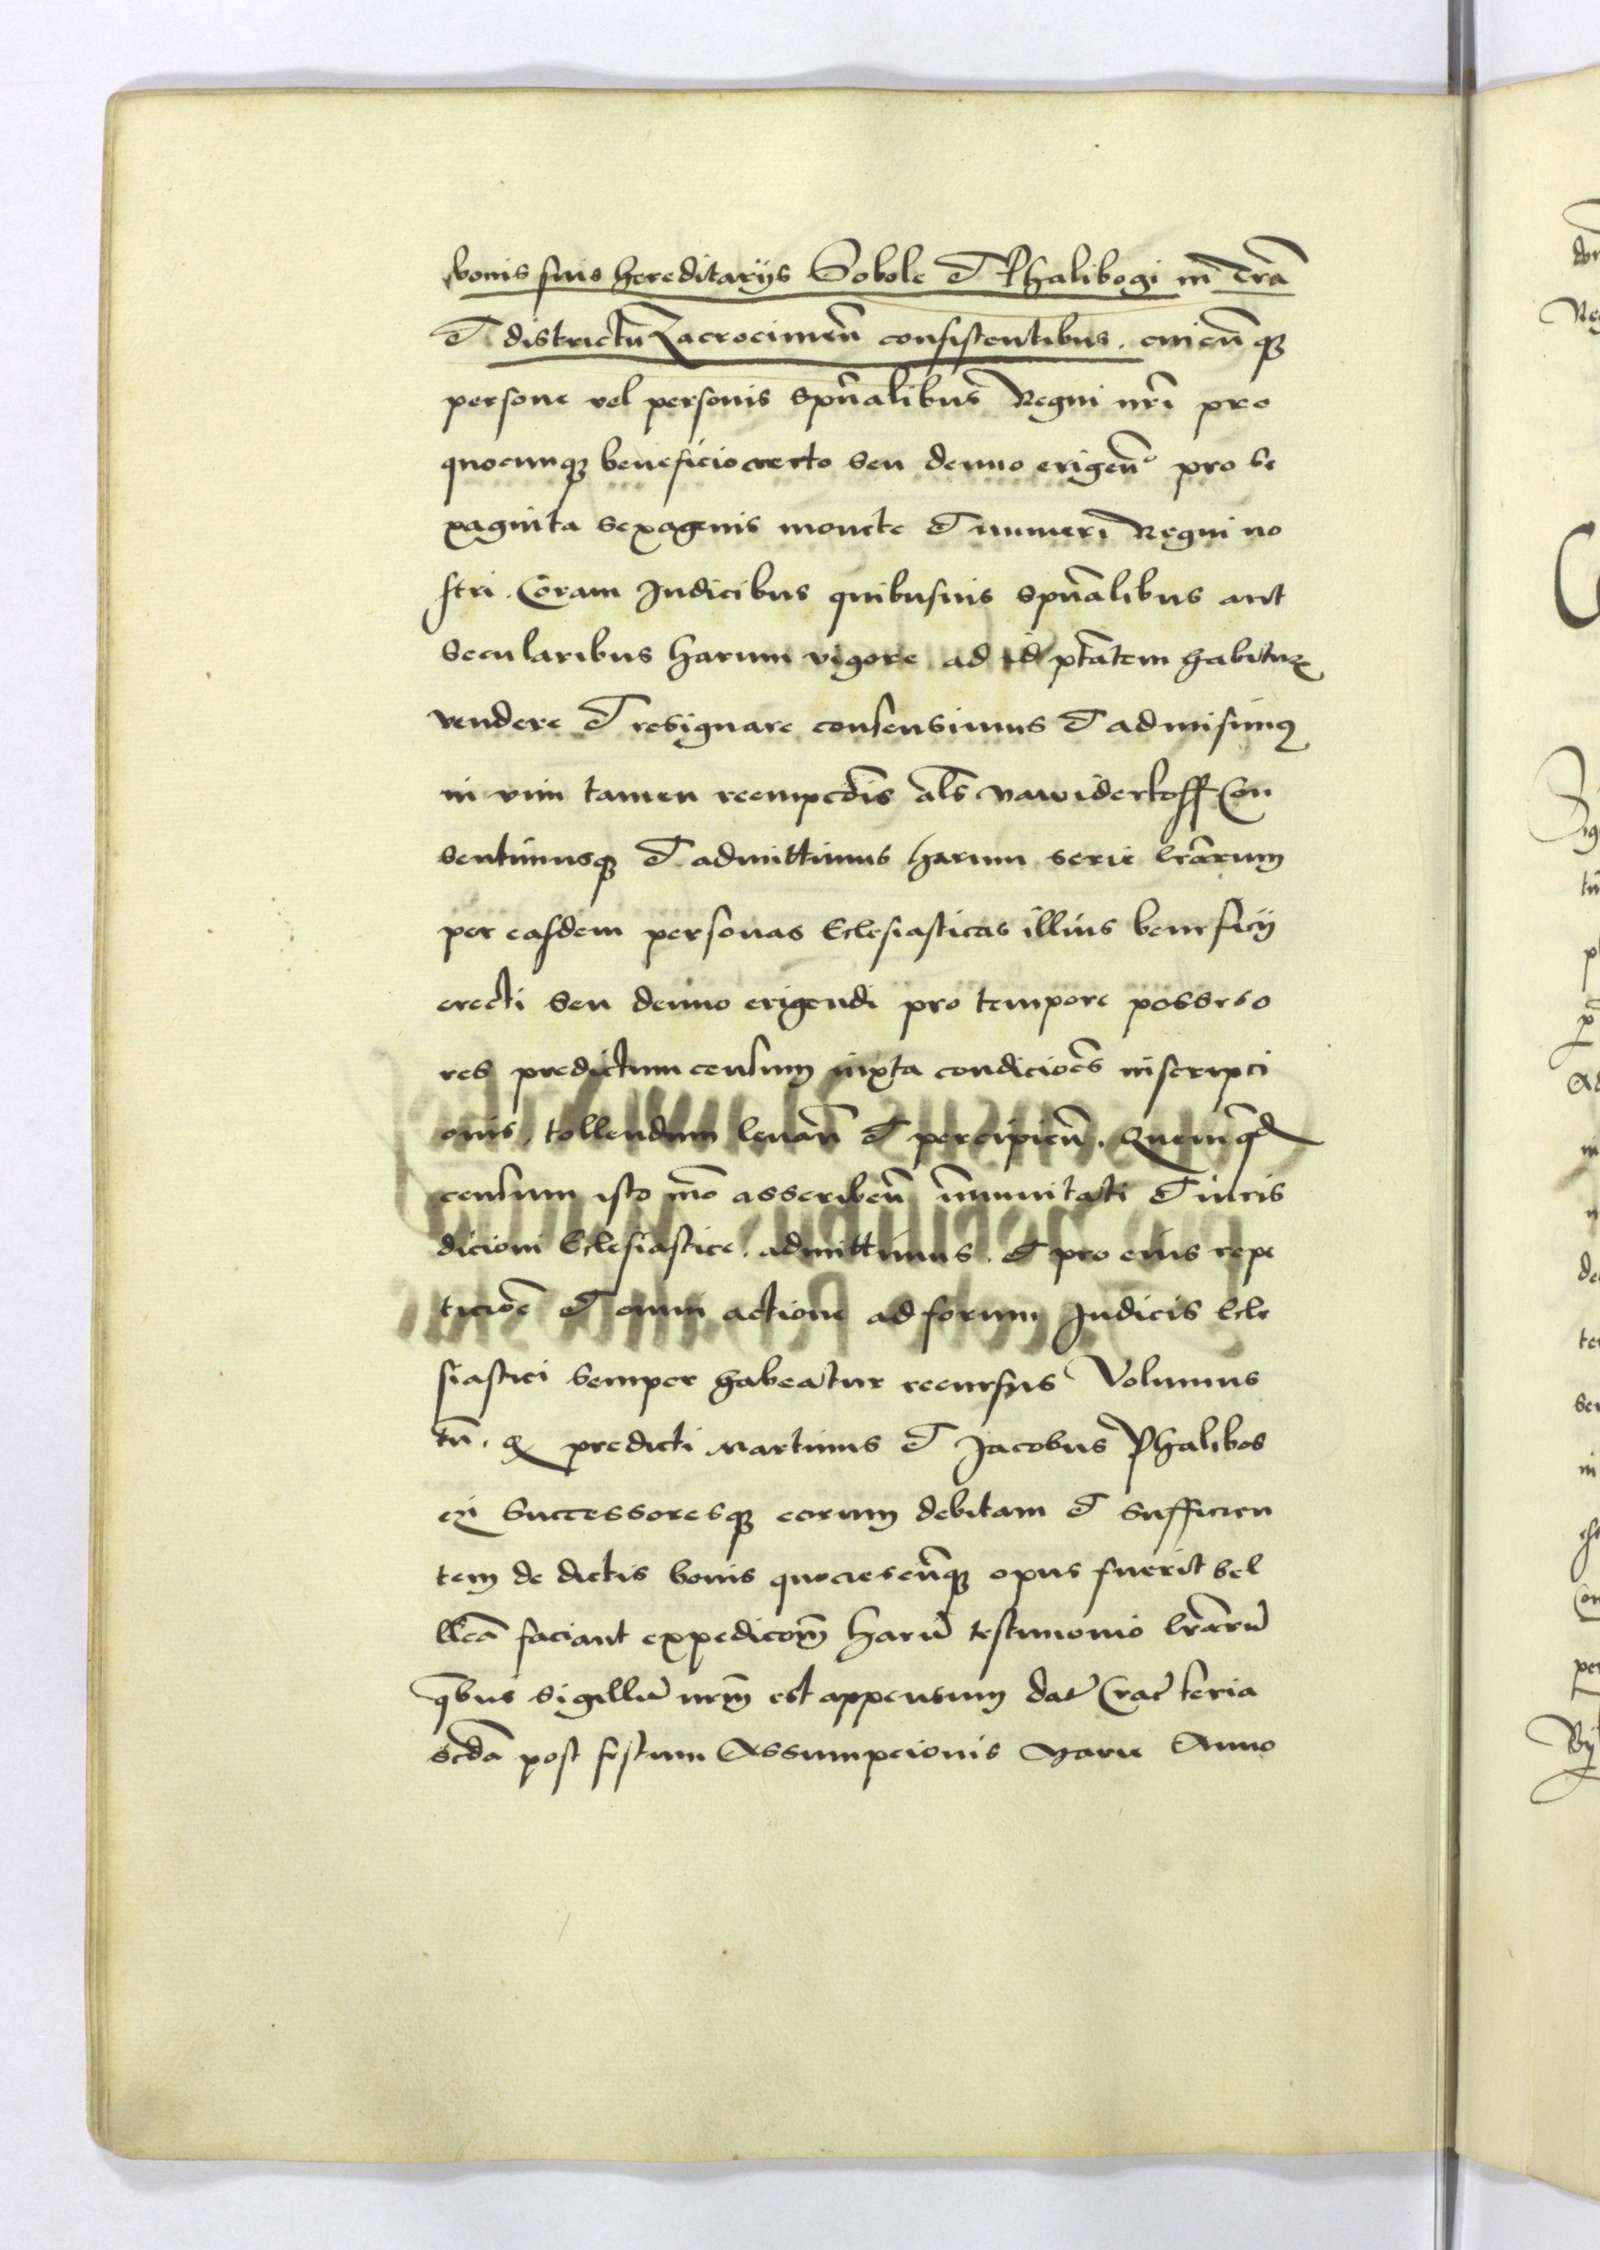 bonis suis hereditarijs Sobole et Phalibogi in tra
et districtu Zacrocimen consistentibus. cuicunq
persone vel personis spualibus Regni nri pro
quocunq beneficio erecto seu denuo erigen pro se
xaginta sexagenis monete et numeri Regni no
stri. Coram Judicibus quibusuis spualibus aut
secularibus harum vigore ad id ptatem habitur
vendere et resignare consensimus et admisimus
in vim tamen reempcois als nawiderkoff Con
sentimusq et admittimus harum serie lrarum
per easdem personas Eclesiasticas illius beneficij
erecti seu denuo erigendi pro tempore possesso
res predictum censum iuxta condicioes inscripci
onis. tollendum leuan et percipien. Quemqd
censum isto mo asscriben immunitati et iuris
dicioni Eclesiastice. admittimus. et pro eius repe
ticioe et omni actione ad forum Judicis Ecle
siastici semper habeatur recursus Volumus
tn. q predicti Martinus et Jacobus Phalibos
czi Successoresq eorum debitam et sufficien
tem de dictis bonis quociescunq opus fuerit bel
licam faciant expedicom haru testimonio lraru
qbus sigillu nrm est appensum dat Crac feria
scda post festum Assumpcionis Marie Anno